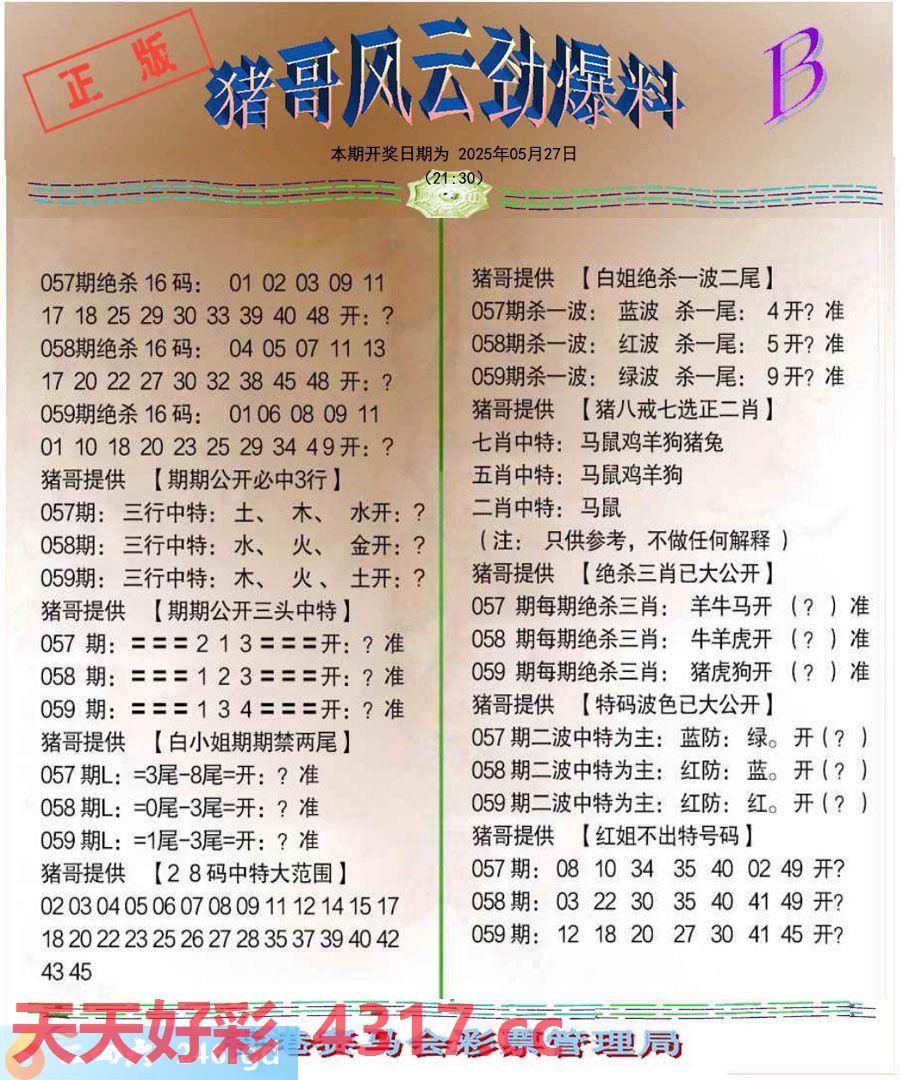 正版
猪哥风云劲爆料
B
本期开奖日期为 2025年05月27日
(21:30)
057期绝杀 16 码： 01 02 03 09 11
17 18 25 29 30 33 39 40 48 开：?
058期绝杀 16 码： 04 05 07 11 13
17 20 22 27 30 32 38 45 48 开：?
059期绝杀 16 码： 01 06 08 09 11
01 10 18 20 23 25 29 34 49 开：?
猪哥提供 【期期公开必中3行】
057期： 三行中特： 土、 木、 水开：?
058期： 三行中特： 水、 火、 金开：?
059期： 三行中特： 木、 火、 土开：?
猪哥提供 【期期公开三头中特】
057 期：===2 1 3===开：? 准
058 期：===1 2 3===开：? 准
059 期：===1 3 4===开：? 准
猪哥提供 【白小姐期期禁两尾】
057 期L：=3尾-8尾=开：? 准
058 期L：=0尾-3尾=开：? 准
059 期L：=1尾-3尾=开：? 准
猪哥提供 【2 8 码中特大范围】
02 03 04 05 06 07 08 09 11 12 14 15 17
18 20 22 23 25 26 27 28 35 37 39 40 42
43 45
猪哥提供 【白姐绝杀一波二尾】
057期杀一波： 蓝波 杀一尾： 4 开? 准
058期杀一波： 红波 杀一尾： 5 开? 准
059期杀一波： 绿波 杀一尾： 9 开? 准
猪哥提供 【猪八戒七选正二肖】
七肖中特： 马鼠鸡羊狗猪兔
五肖中特： 马鼠鸡羊狗
二肖中特： 马鼠
（注： 只供参考，不做任何解释 ）
猪哥提供 【绝杀三肖已大公开】
057 期每期绝杀三肖： 羊牛马开 （? ）准
058 期每期绝杀三肖： 牛羊虎开 （? ）准
059 期每期绝杀三肖： 猪虎狗开 （? ）准
猪哥提供 【特码波色已大公开】
057 期二波中特为主： 蓝防： 绿。 开（? ）
058 期二波中特为主： 红防： 蓝。 开（? ）
059 期二波中特为主： 红防： 红。 开（? ）
猪哥提供 【红姐不出特号码】
057 期： 08 10 34 35 40 02 49 开?
058 期： 03 22 30 35 40 41 49 开?
059 期： 12 18 20 27 30 41 45 开?
天天好彩 4317.cc
港赛马会彩票管理局